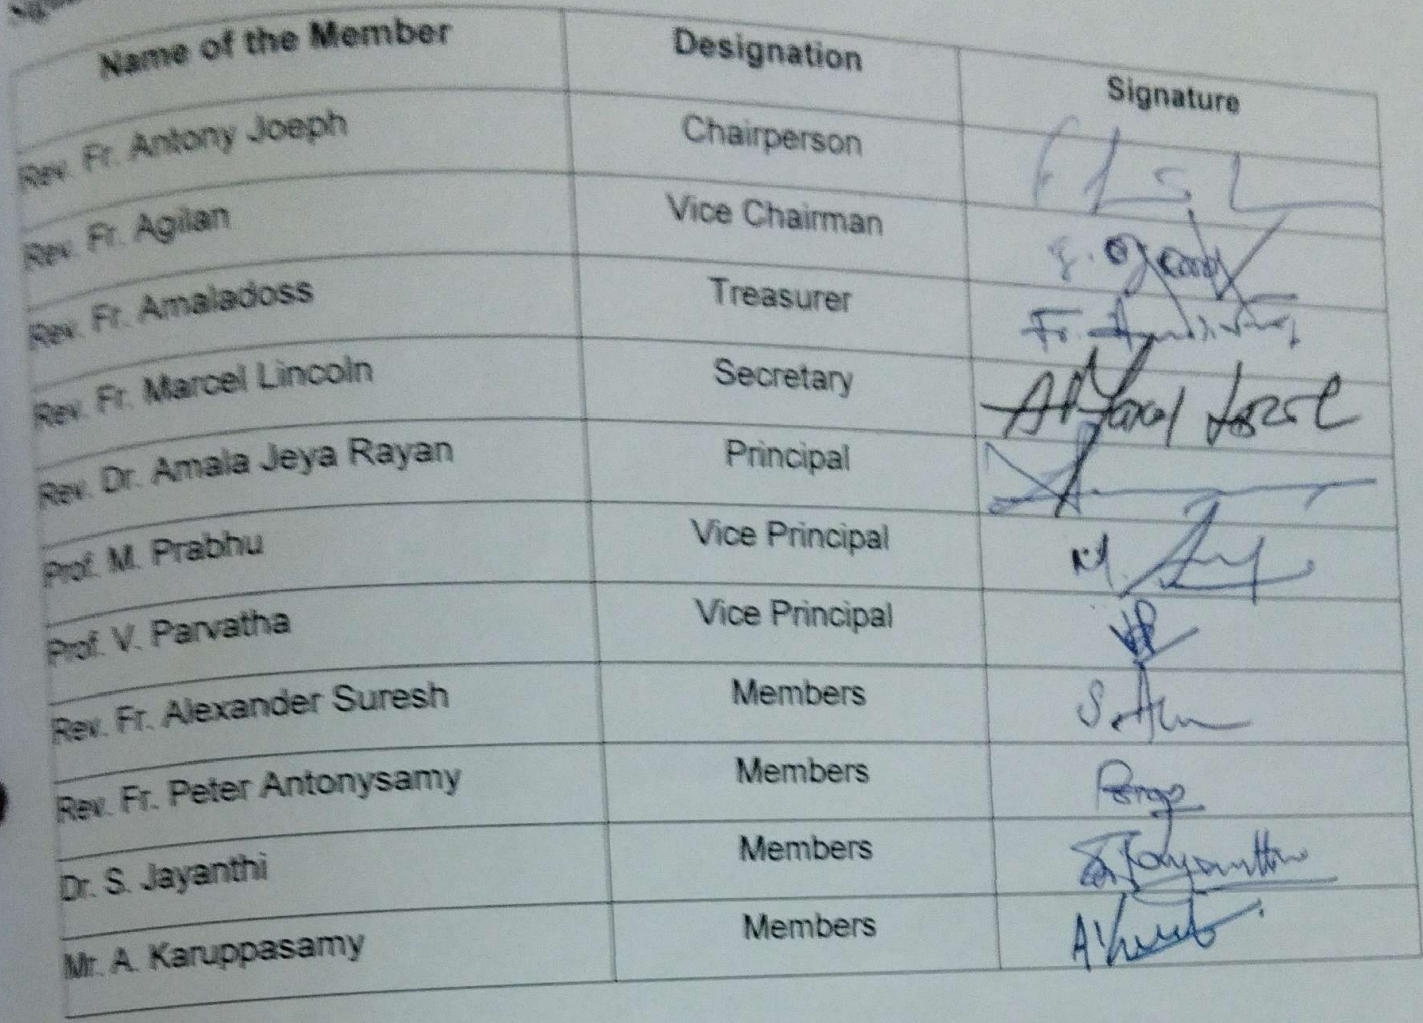 Name of the Member Designation Signature
Rev. Fr. Antony Joeph Chairperson
Rev. Fr. Agilan Vice Chairman
Rev. Fr. Amaladoss Treasurer
Rev. Fr. Marcel Lincoln Secretary
Rev. Dr. Amala Jeya Rayan Principal
Prof. M. Prabhu Vice Principal M.
Prof. V. Parvatha Vice Principal
Rev. Fr. Alexander Suresh Members
Rev. Fr. Peter Antonysamy Members
Dr. S. Jayanthi Members S. Jayanthi
Mr. A. Karuppasamy Members